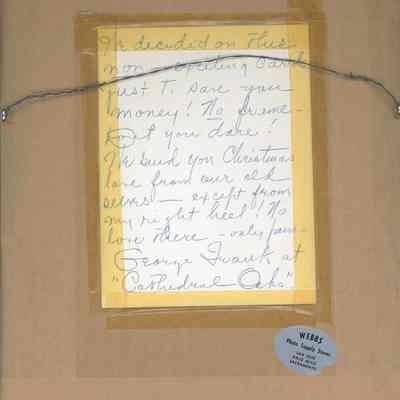 We decided on this
non-exciting card
just T. save you
money! No frame -
Don't you dare!
We send you Christmas
love from our old
selves — except from
my right heel! No
love there - only pain -
George Frank at
"Cathedral Oaks."
WEBBS
Photo Supply Stores
SAN JOSE
PALO ALTO
SACRAMENTO